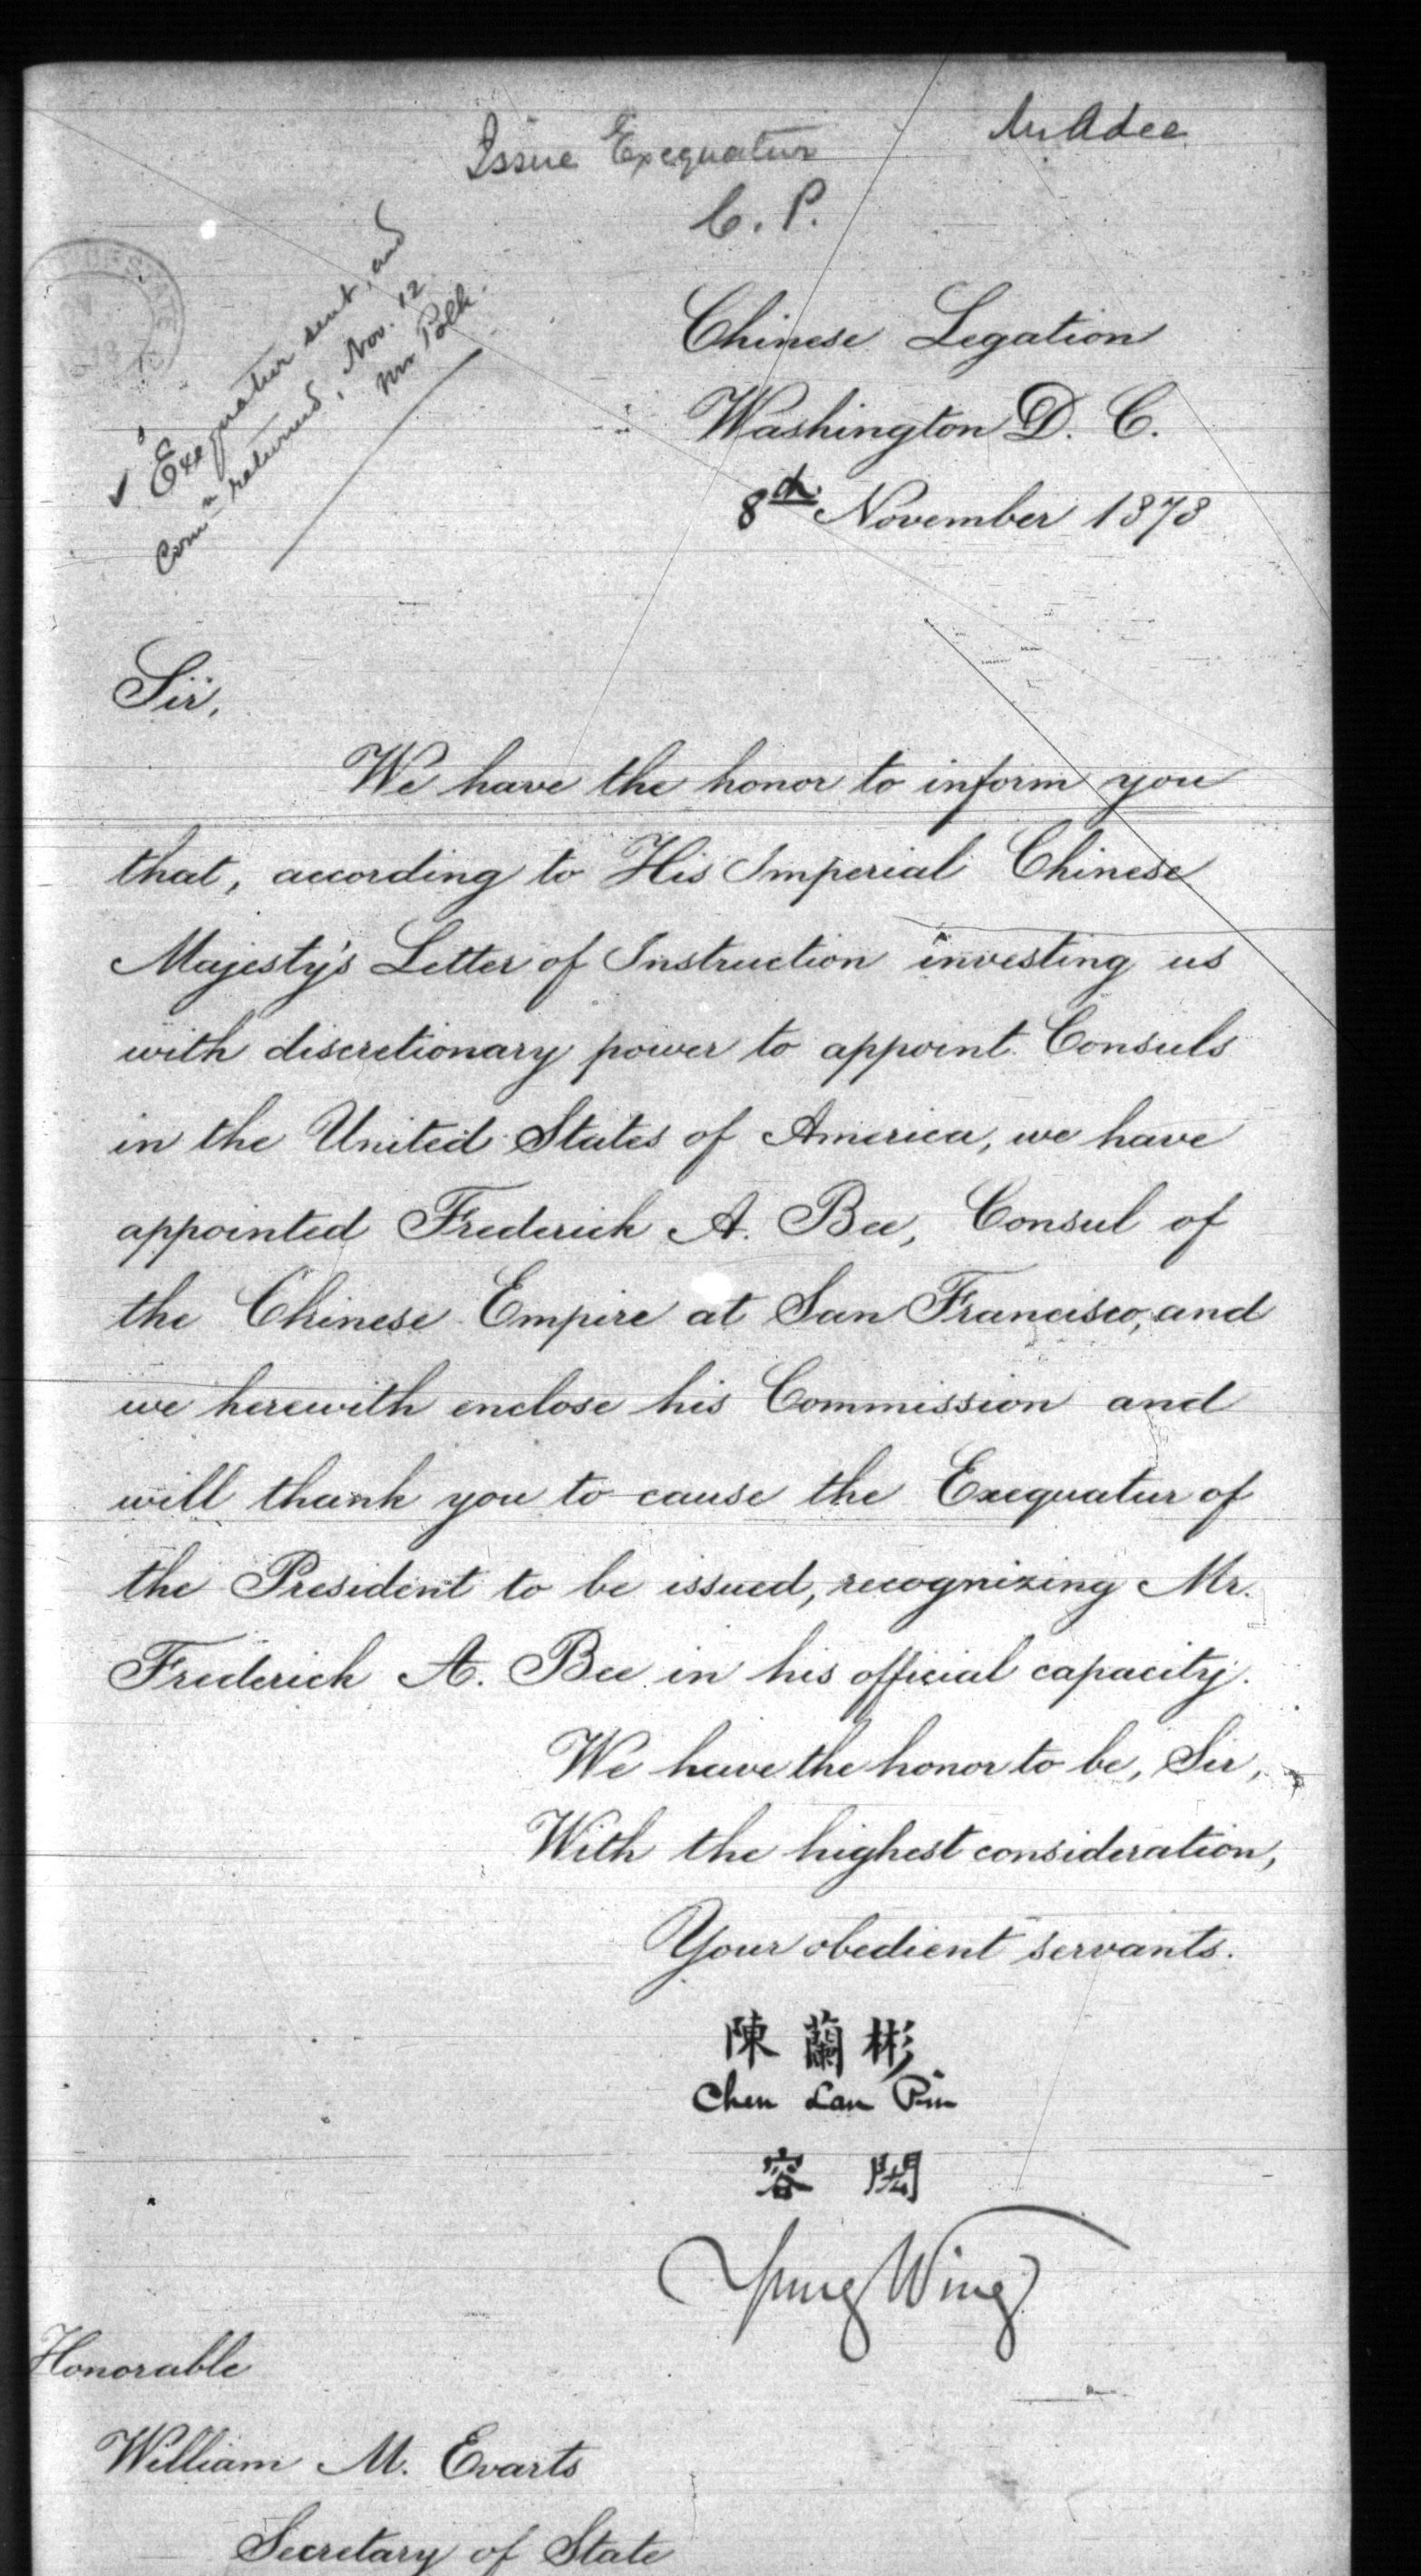 Mr Adee
Issue Exequatur
C. P.
Exequatur sent, and
Comn returned, Nov. 12
Mr Polk.
Chinese Legation
Washington D. C.
8th November 1878
Sir,
We have the honor to inform you
that, according to His Imperial Chinese
Majesty's Letter of Instruction investing us
with discretionary power to appoint Consuls
in the United States of America, we have
appointed Frederick A. Bee, Consul of
the Chinese Empire at San Francisco, and
we herewith enclose his Commission and
will thank you to cause the Exequatur of
the President to be issued, recognizing Mr.
Frederick A. Bee in his official capacity.
We have the honor to be, Sir,
With the highest consideration,
Your obedient servants.
陳蘭彬
Chen Lan Pin
容閎
Yung Wing
Honorable
William M. Evarts
Secretary of State